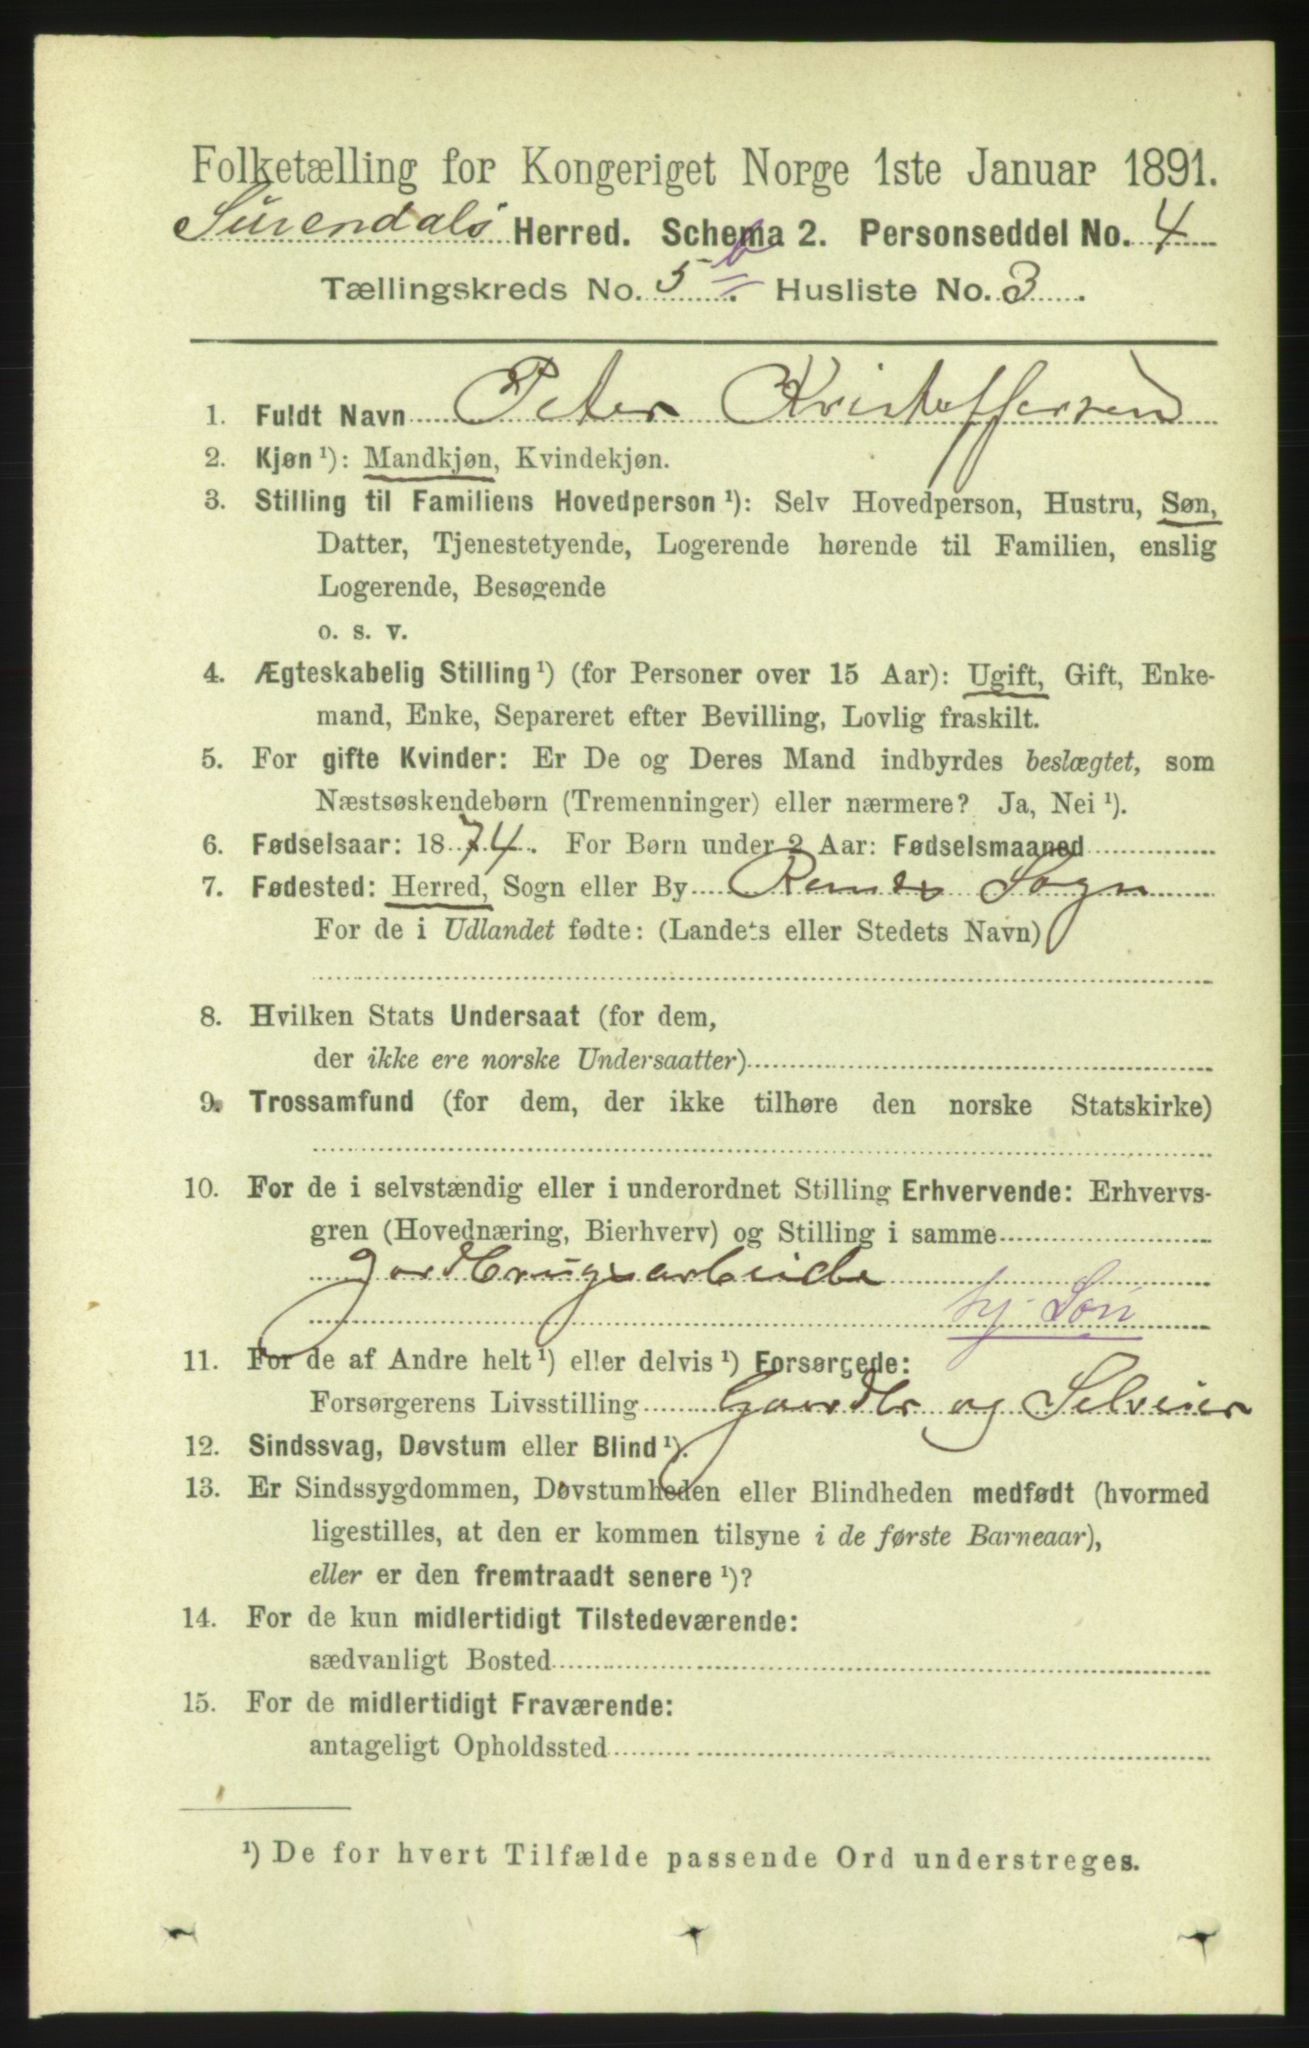 Folketælling for Kongeriget Norge 1ste Januar 1891.
Surendals Herred. Schema 2. Personseddel No. 4
Tællingskreds No. 5 b. Husliste No. 3.
1. Fuldt Navn Peter Kristoffersen
2. Kjøn ¹): Mandkjøn, Kvindekjøn.
3. Stilling til Familiens Hovedperson ¹): Selv Hovedperson, Hustru, Søn,
Datter, Tjenestetyende, Logerende hørende til Familien, enslig
Logerende, Besøgende
o. s. v.
4. Ægteskabelig Stilling ¹) (for Personer over 15 Aar): Ugift, Gift, Enke-
mand, Enke, Separeret efter Bevilling, Lovlig fraskilt.
5. For gifte Kvinder: Er De og Deres Mand indbyrdes beslægtet, som
Næstsøskendebørn (Tremenninger) eller nærmere? Ja, Nei ¹).
6. Fødselsaar: 1874. For Børn under 2 Aar: Fødselsmaaned
7. Fødested: Herred, Sogn eller By Sogn
For de i Udlandet fødte: (Landets eller Stedets Navn)
8. Hvilken Stats Undersaat (for dem,
der ikke ere norske Undersaatter)
9. Trossamfund (for dem, der ikke tilhøre den norske Statskirke)
10. For de i selvstændig eller i underordnet Stilling Erhvervende: Erhvervs-
gren (Hovednæring, Bierhverv) og Stilling i samme
Jordbrugsarbeide
hj. Søn
11. For de af Andre helt ¹) eller delvis ¹) Forsørgede:
Forsørgerens Livsstilling Gaardbr og Selveier
12. Sindssvag, Døvstum eller Blind ¹).
13. Er Sindssygdommen, Døvstumheden eller Blindheden medfødt (hvormed
ligestilles, at den er kommen tilsyne i de første Barneaar),
eller er den fremtraadt senere ¹)?
14. For de kun midlertidigt Tilstedeværende:
sædvanligt Bosted
15. For de midlertidigt Fraværende:
antageligt Opholdssted
¹) De for hvert Tilfælde passende Ord understreges.